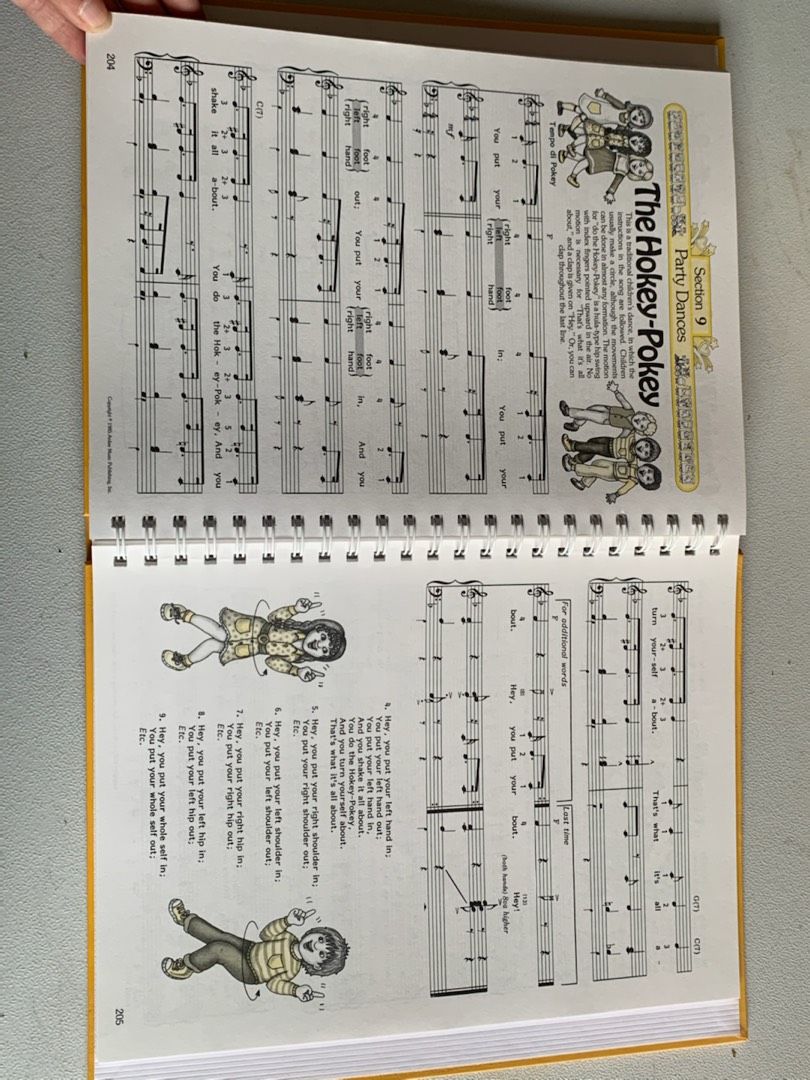 Section 9
Party Dances
The Hokey-Pokey
This is a traditional children's dance, in which the
instructions in the song are followed. Children
usually make a circle, although the movements
can be done in almost any formation. The motion
for "do the Hokey-Pokey" is a hula-type hip swing
with index fingers pointed upward in the air. No
motion is necessary for "That's what it's all
about," and a clap is given on "Hey." Or, you can
clap throughout the last line.
Tempo di Pokey
F
1 2 1 4 4 4 1 2 1
You put your right foot in; You put your
left foot
right hand
mf
4 4 4 1 2 1 4 4 4 2 1
right foot out; You put your right foot in, And you
left foot left foot
right hand right hand
C(7)
3 2+ 3 2+ 3 1 3 2+ 3 2+ 3 5 2 1
shake it all a-bout. You do the Hok - ey-Pok - ey, And you
Copyright © 1985 Ardee Music Publishing, Inc.
204
G(7) C(7)
3 2+ 3 2+ 3 1 1 2 3
turn your-self a-bout. That's what it's all a -
For additional words
F
Last time
F
4 (8) 1 2 1 4 (13)
bout. Hey, you put your bout. Hey!
(both hands) 8va higher
4. Hey, you put your left hand in;
You put your left hand out;
You put your left hand in,
And you shake it all about.
You do the Hokey-Pokey,
And you turn yourself about.
That's what it's all about.
5. Hey, you put your right shoulder in;
You put your right shoulder out;
Etc.
6. Hey, you put your left shoulder in;
You put your left shoulder out;
Etc.
7. Hey, you put your right hip in;
You put your right hip out;
Etc.
8. Hey, you put your left hip in;
You put your left hip out;
Etc.
9. Hey, you put your whole self in;
You put your whole self out;
Etc.
205